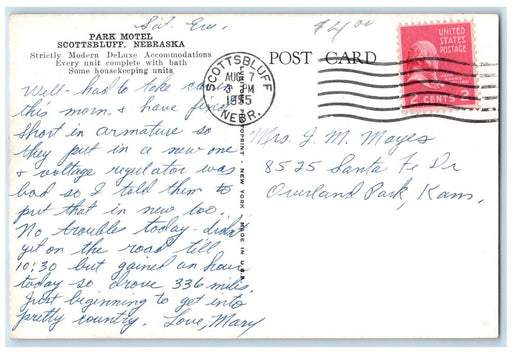 Sat. Eve.
$4.00
PARK MOTEL
SCOTTSBLUFF, NEBRASKA
Strictly Modern DeLuxe Accommodations
Every unit complete with bath
Some housekeeping units
POST CARD
UNITED
STATES
POSTAGE
2 CENTS 2
SCOTTSBLUFF
AUG 7
3 PM
1955
NEBR.
Well - had to take car in
this morn. & have fixed.
Short in armature so
they put in a new one
& voltage regulator was
bad so I told them to
put that in new too.
No troubles today - didn't
get on the road till
10:30 but gained an hour
today so drove 336 miles.
Just beginning to get into
pretty country. Love, Mary
Mrs. J. M. Mayes
8525 Santa Fe Dr
Overland Park, Kans.
NEW YORK MADE IN U.S.A.